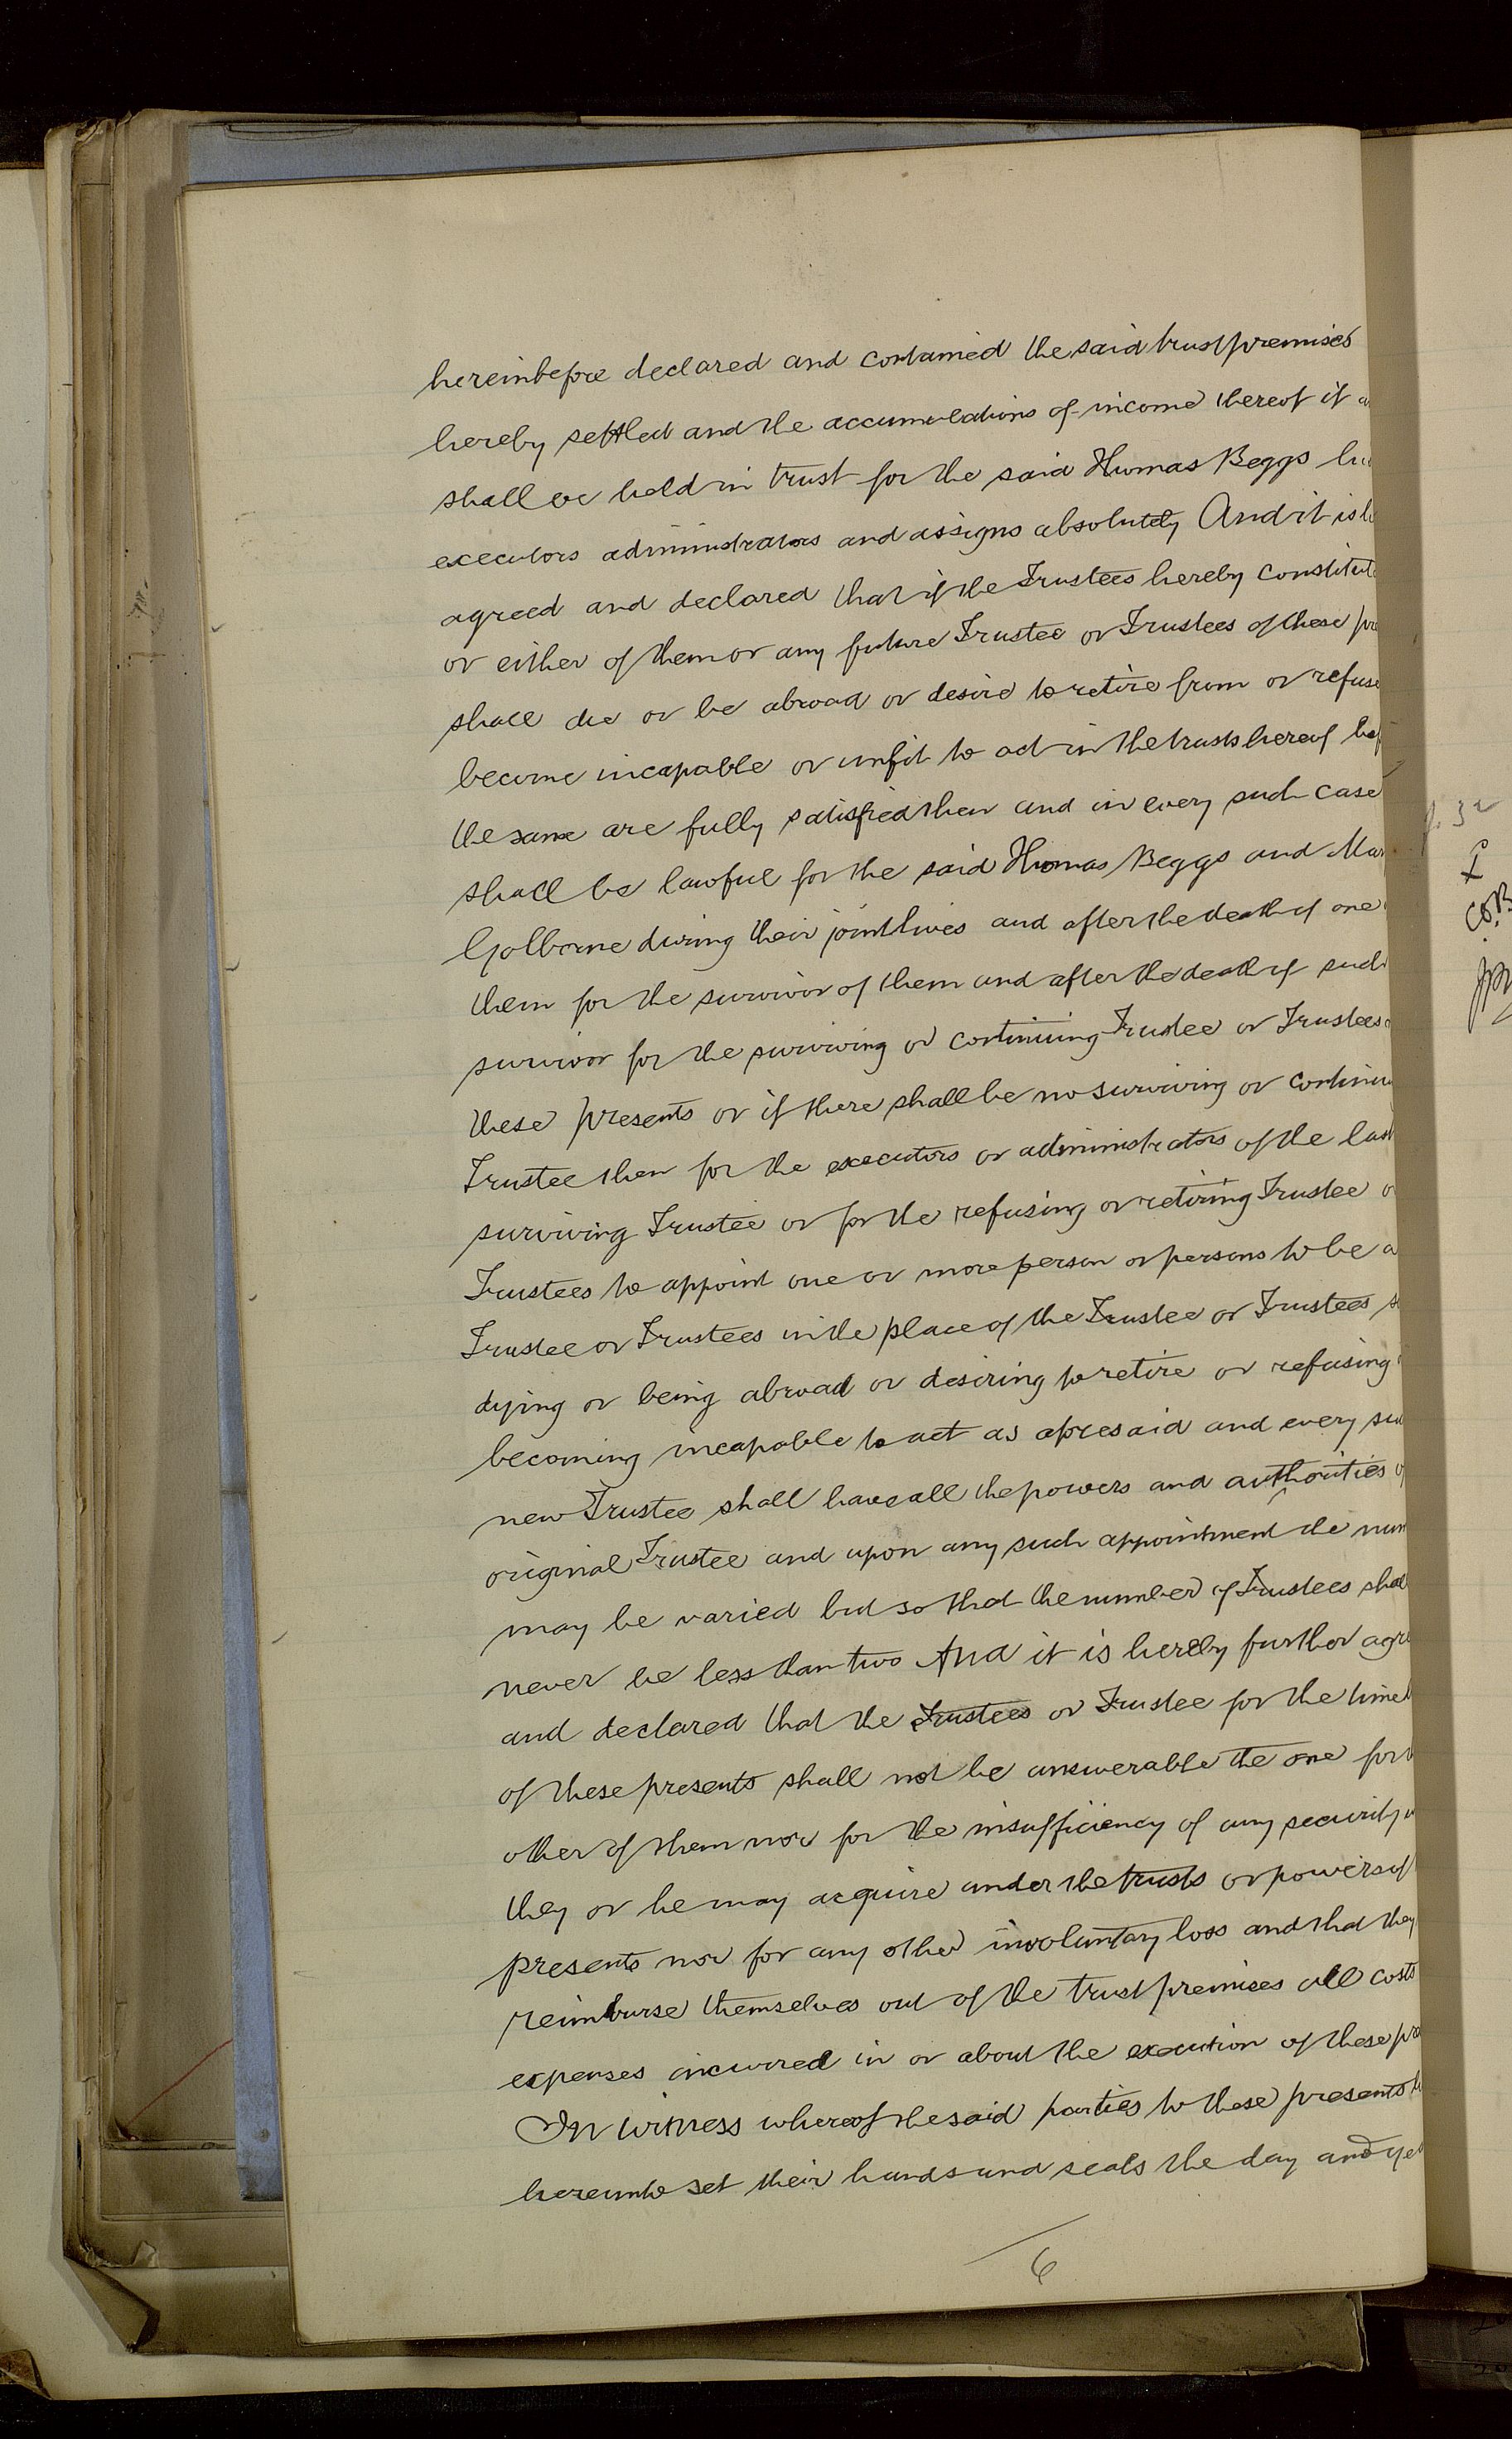 hereinbefore declared and contained the said trust premises
hereby settled and the accumulations of income thereof if
shall be held in trust for the said Thomas Beggs
executors administrators and assigns absolutely And it is
agreed and declared that if the Trustees hereby constitut
or either of them or any future Trustee or Trustees of these pre
shall die or be abroad or desire to retire from or refuse
become incapable or unfit to act in the trusts hereof bef
the same are fully satisfied then and in every such case
shall be lawful for the said Thomas Beggs and Mar
Golborne during their joint lives and after the death of one
them for the survivor of them and after the death of such
survivor for the surviving or continuing Trustee or Trustees
these presents or if there shall be no surviving or continu
Trustee then for the executors or administrators of the last
surviving Trustee or for the refusing or retiring Trustee o
Trustees to appoint one or more person or persons to be a
Trustee or Trustees in the place of the Trustee or Trustees s
dying or being abroad or desiring to retire or refusing
becoming incapable to act as aforesaid and every su
new Trustee shall have all the powers and authorities o
original Trustee and upon any such appointment the num
may be varied but so that the number of Trustees shall
never be less than two And it is hereby further agre
and declared that the Trustees or Trustee for the time
of these presents shall not be answerable the one for
other of them nor for the insufficiency of any security
they or he may acquire under the trusts or powers of
presents nor for any other involuntary loss and that they
reimburse themselves out of the trust premises all costs
expenses incurred in or about the execution of these pre
In Witness whereof the said parties to these presents h
hereunto set their hands and seals the day and ye
6